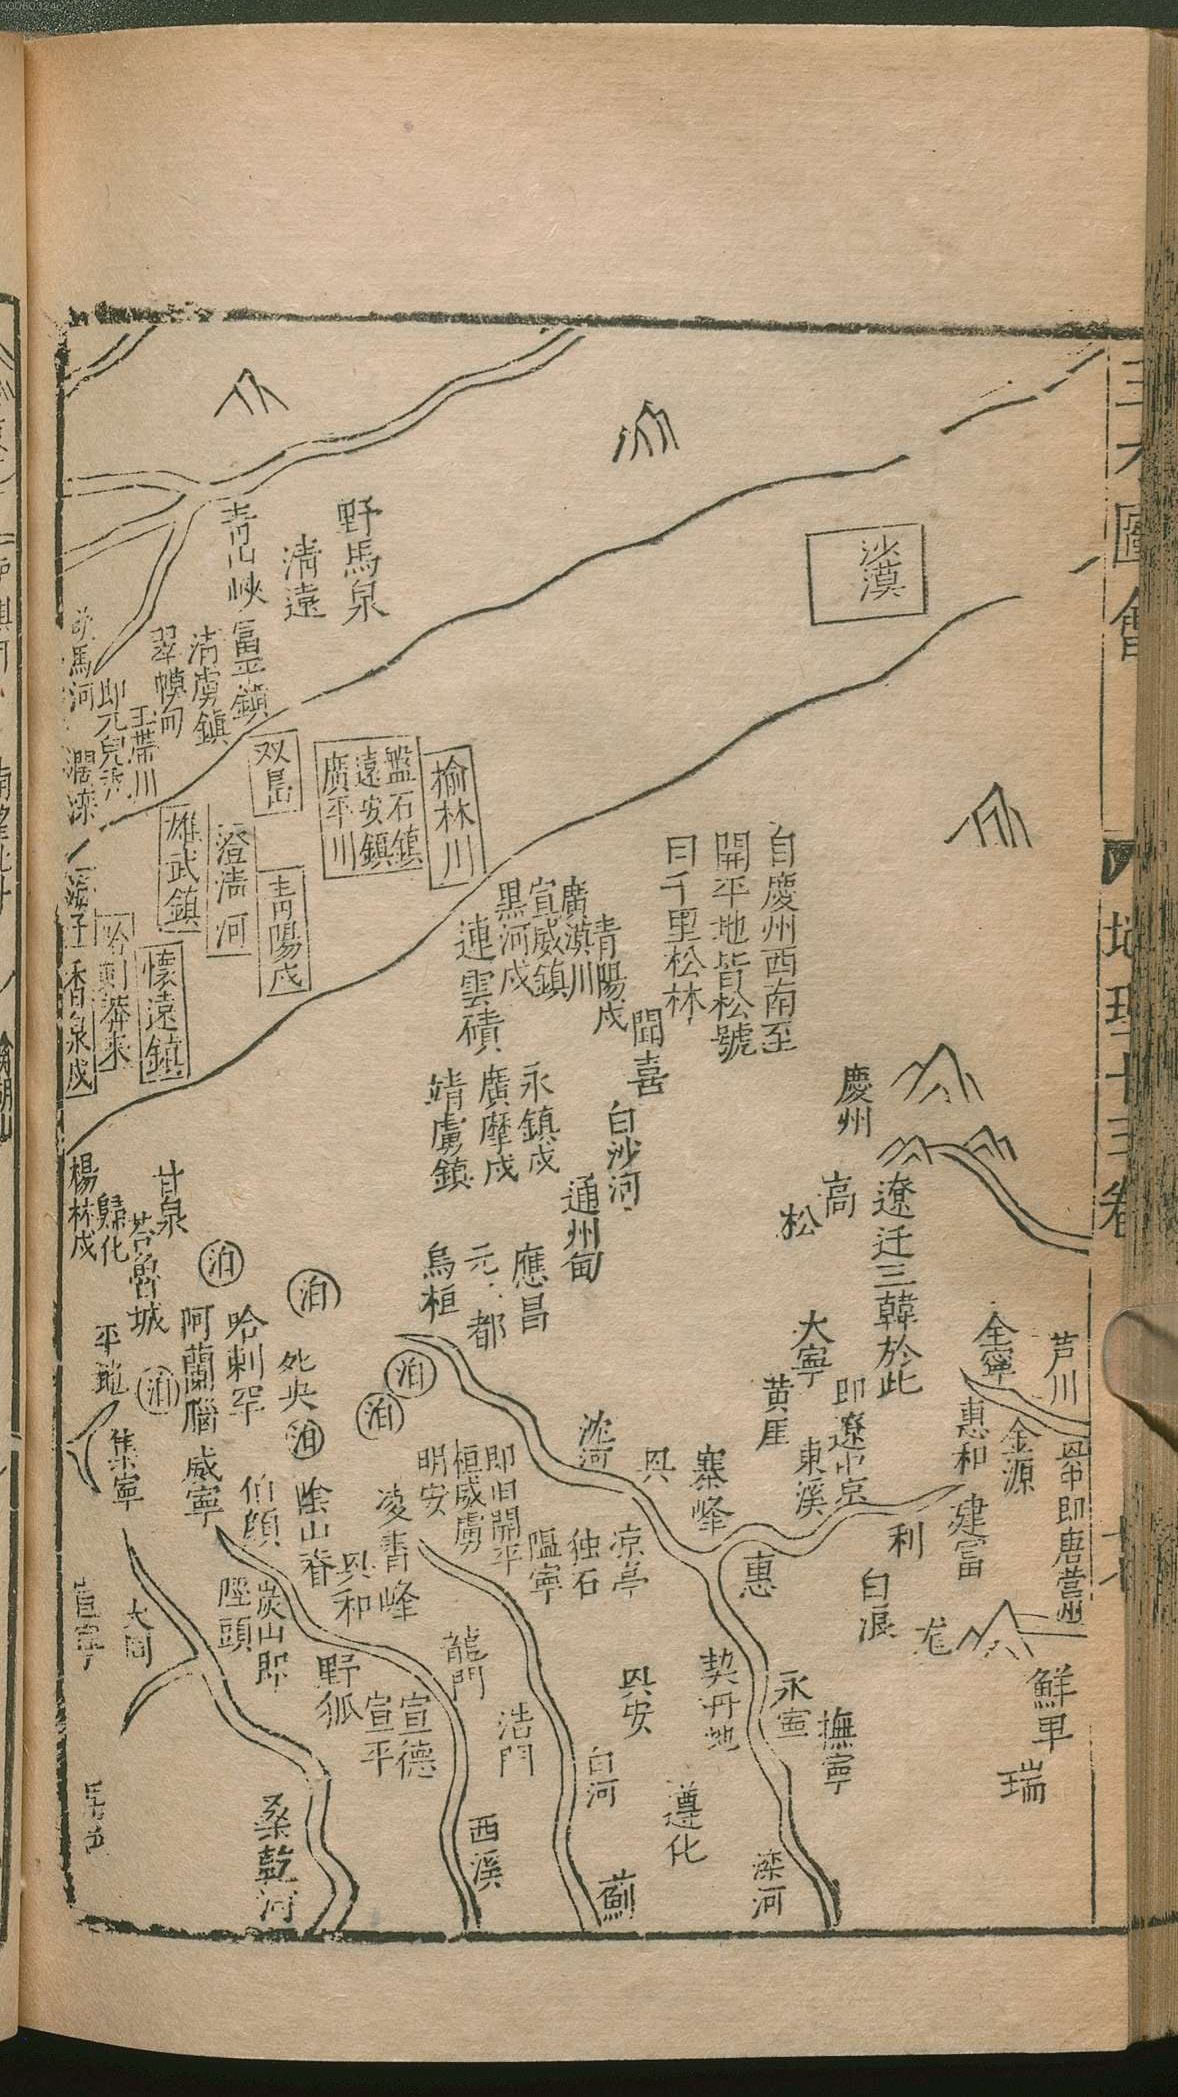 圖會
地理十三卷
沙漠
自慶州西南至
開平地皆松號
曰千里松林
慶州
遼迁三韓於此
高
松
全寧
芦川
金源
惠和
大寧
即遼中京
黄崖
東溪
建富
利
白浪
鮮卑
瑞
惠
寨峰
沈河
凉亭
独石
契丹地
永寧
撫寧
遵化
灤河
薊
白河
聞喜
白沙河
青陽戍
廣滇川
宣威鎮
黒河戍
連雲磧
永鎮戍
廣摩戍
靖虜鎮
通州甸
應昌
元都
烏桓
即旧開平
桓威虜
明安
凌青峰
龍門
浩門
西溪
宣德
宣平
野狐
興和
陰山脊
炭山即
陘頭
桑乾河
野馬泉
清遠
青山峽
富平鎮
清虜鎮
翠幙甸
玉帶川
榆林川
盤石鎮
遠安鎮
廣平川
青陽戍
澄清河
雄武鎮
懷遠鎮
香泉戍
甘泉
苔魯城
歸化
楊林戍
泊
泊
泊
泊
泊
泊
哈剌罕
阿蘭腦
威寧
集寧
平地
大同
宣寧